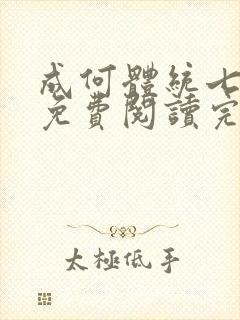 成何體統七
免費閱讀完
太極低手